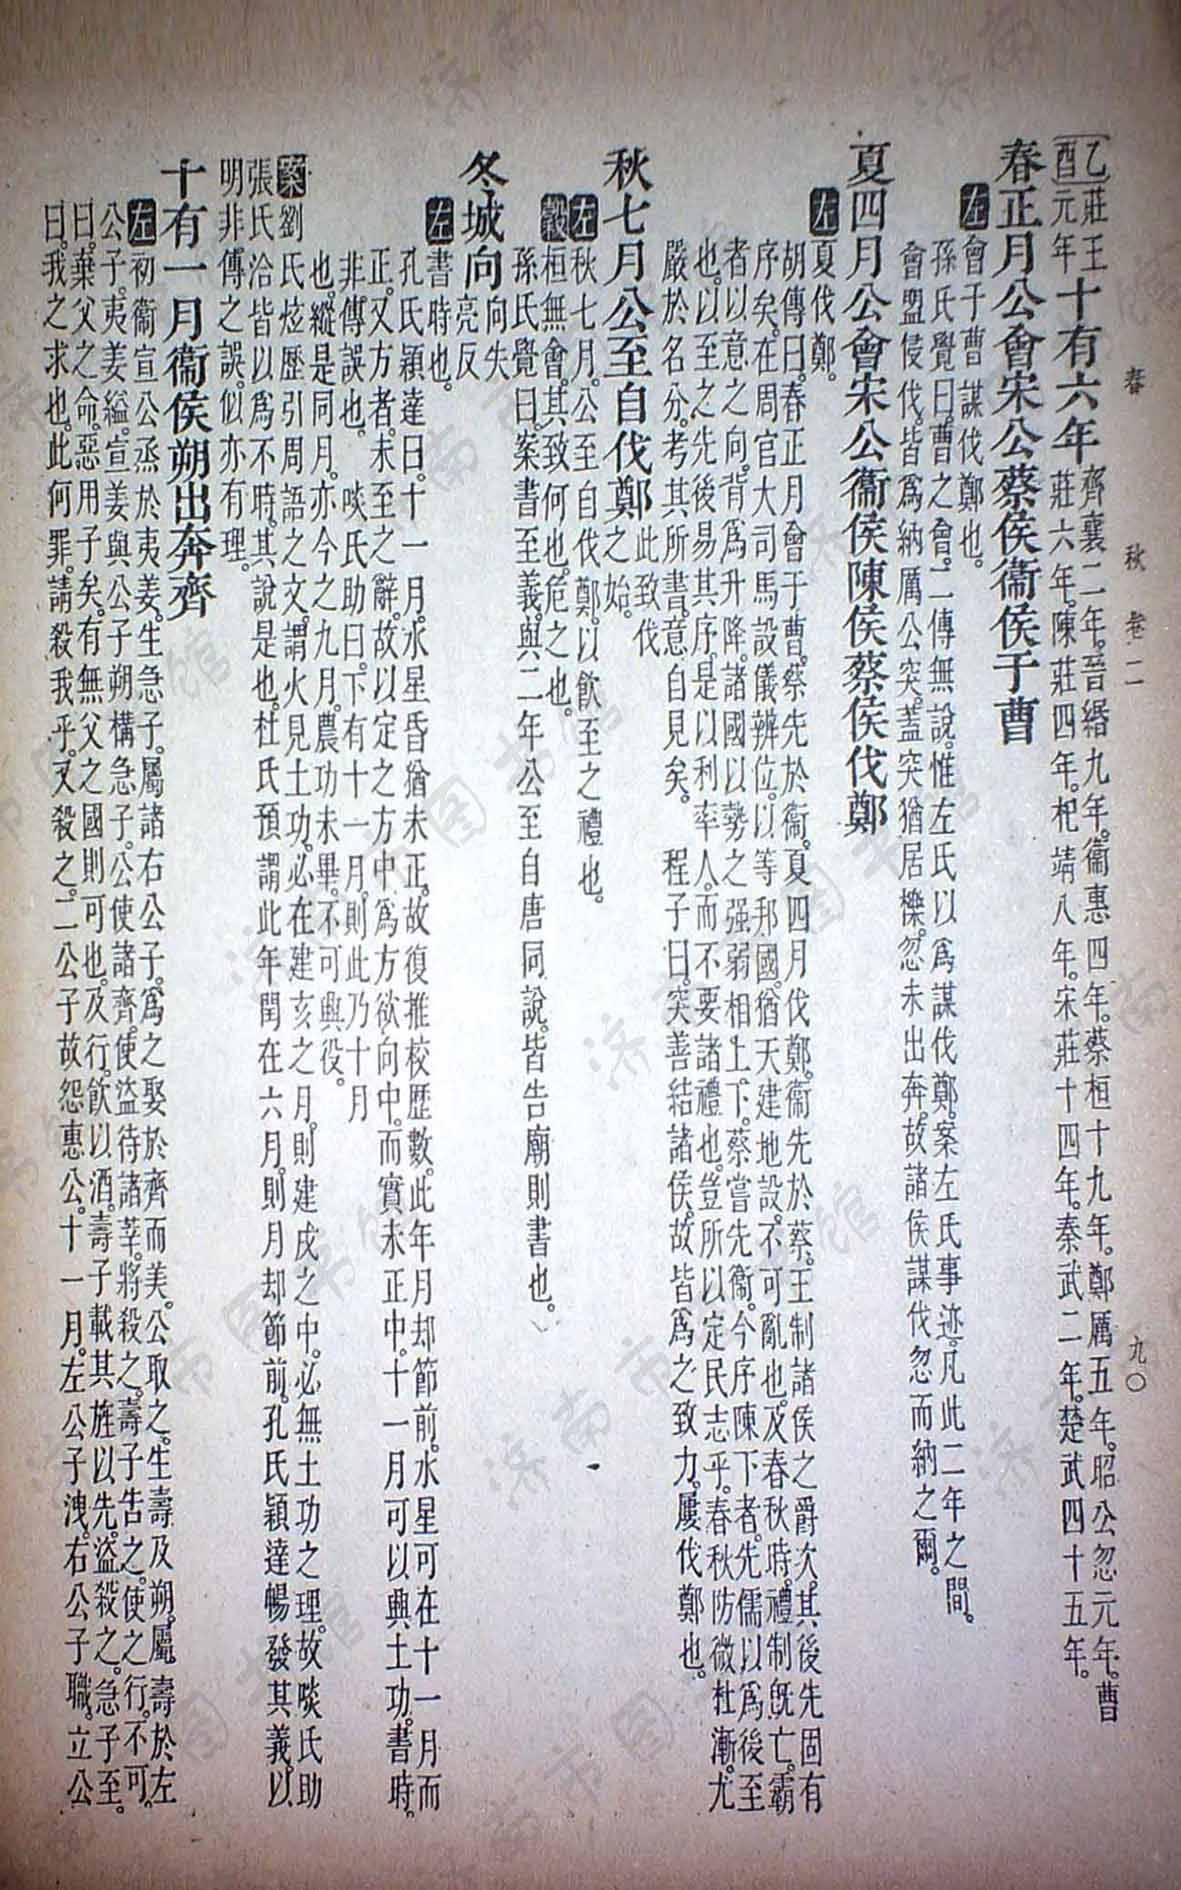 春　秋　卷二　九〇
乙酉 莊王元年 十有六年 齊襄二年。晉緡九年。衞惠四年。蔡桓十九年。鄭厲五年。昭公忽元年。曹
莊六年。陳莊四年。杞靖八年。宋莊十四年。秦武二年。楚武四十五年。
春正月公會宋公蔡侯衞侯于曹
左 會于曹謀伐鄭也。
孫氏覺曰。曹之會。二傳無說。惟左氏以爲謀伐鄭。案左氏事迹。凡此二年之間。
會盟侵伐。皆爲納厲公突。蓋突猶居櫟。忽未出奔。故諸侯謀伐忽而納之爾。
夏四月公會宋公衞侯陳侯蔡侯伐鄭
左 夏伐鄭。
胡傳曰。春正月會于曹。蔡先於衞。夏四月伐鄭。衞先於蔡。王制諸侯之爵次。其後先固有
序矣。在周官大司馬設儀辨位。以等邦國。猶天建地設。不可亂也。及春秋時。禮制旣亡。霸
者以意之向背爲升降。諸國以勢之强弱相上下。蔡嘗先衞。今序陳下者。先儒以爲後至
也。以至之先後易其序。是以利率人。而不要諸禮也。豈所以定民志乎。春秋防微杜漸。尤
嚴於名分。考其所書。意自見矣。　程子曰。突善結諸侯。故皆爲之致力。屢伐鄭也。
秋七月公至自伐鄭 此致伐之始。
左 秋七月。公至自伐鄭。以飮至之禮也。
穀 桓無會。其致何也。危之也。
孫氏覺曰。案書至義。與二年公至自唐同說。皆告廟則書也。
冬城向 向失亮反
左 書時也。
孔氏穎達曰。十一月。水星昏猶未正。故復推校歷數。此年月却節前。水星可在十一月而
正。又方者。未至之辭。故以定之方中。爲方欲向中。而實未正中。十一月可以興土功。書時。
非傳誤也。　啖氏助曰。下有十一月。則此乃十月
也。縱是同月。亦今之九月。農功未畢。不可興役。
案 劉氏炫歷引周語之文。謂火見土功。必在建亥之月。則建戌之中。必無土功之理。故啖氏助
張氏洽皆以爲不時。其說是也。杜氏預謂此年閏在六月。則月却節前。孔氏穎達暢發其義。以
明非傳之誤。似亦有理。
十有一月衞侯朔出奔齊
左 初衞宣公烝於夷姜。生急子。屬諸右公子。爲之娶於齊而美。公取之。生壽及朔。屬壽於左
公子。夷姜縊。宣姜與公子朔構急子。公使諸齊。使盜待諸莘。將殺之。壽子告之。使之行。不可。
曰。棄父之命。惡用子矣。有無父之國則可也。及行。飮以酒。壽子載其旌以先。盜殺之。急子至。
曰。我之求也。此何罪。請殺我乎。又殺之。二公子故怨惠公。十一月。左公子洩。右公子職。立公